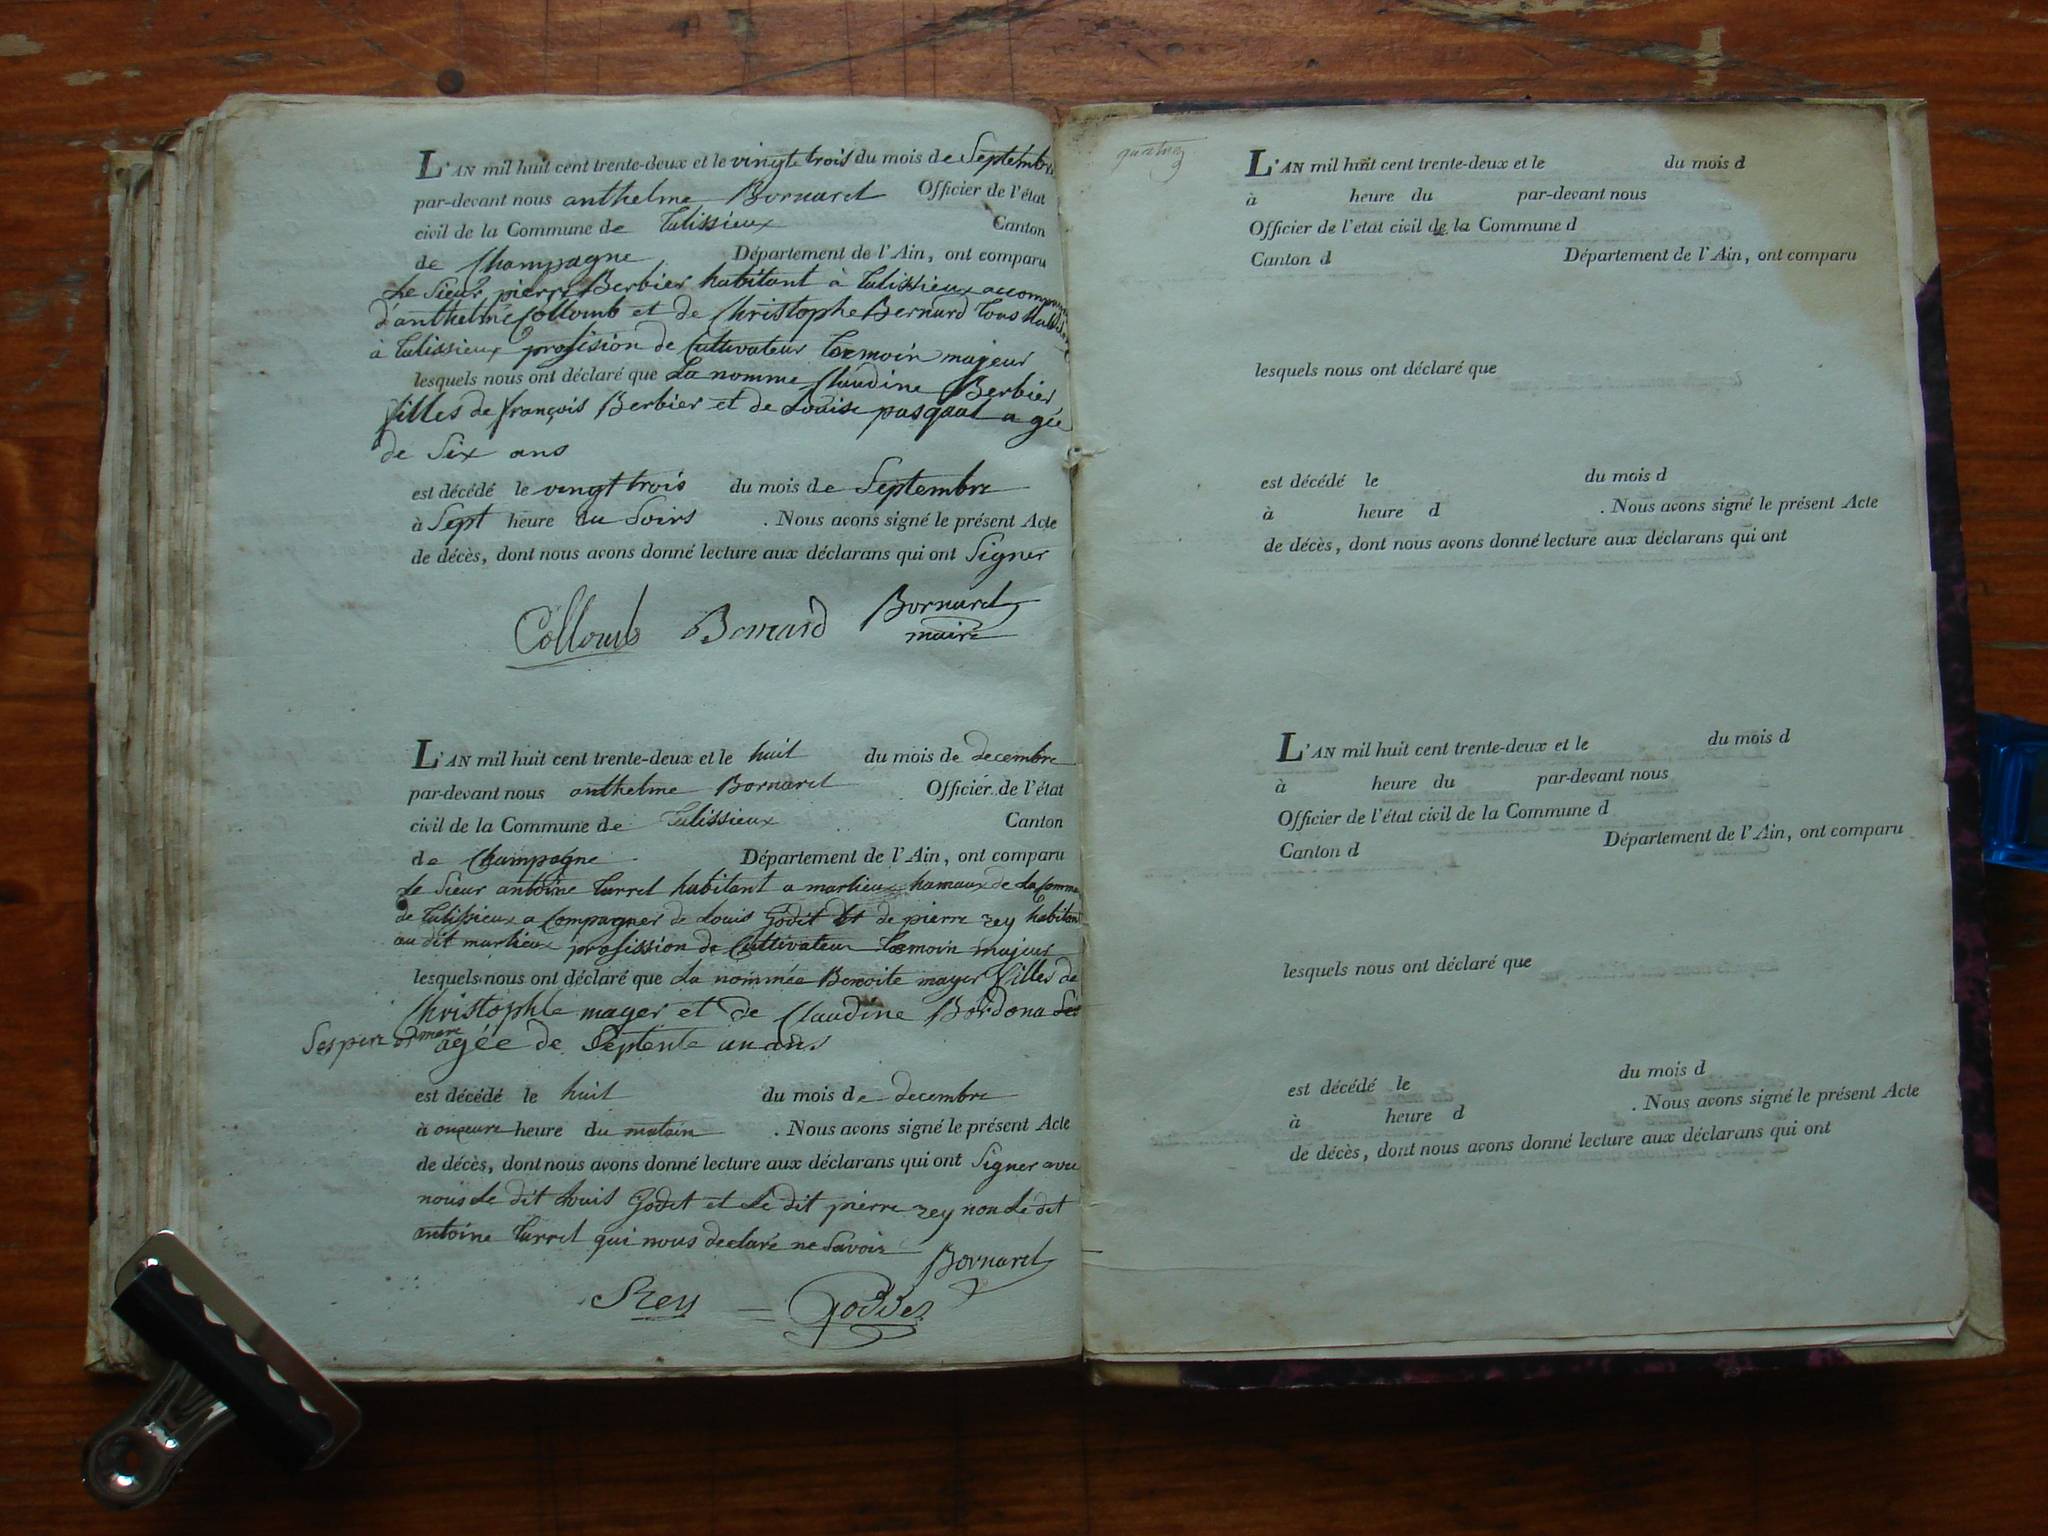 L'AN mil huit cent trente-deux et le vingt trois du mois de Septembre
par-devant nous anthelme Bornarel Officier de l'état
civil de la Commune de talissieux Canton
de Champagne Département de l'Ain, ont comparu
Le Sieur pierre Berbier habitant à talissieux accompagné
d'anthelme Colloumb et de Christophe Bernard tous
à talissieux profision de Cultivateur temoin majeur
lesquels nous ont déclaré que La nomme Claudine Berbier
filles de françois Berbier et de Louise pasqual agée
de Six ans
est décédé le vingt trois du mois de Septembre
à Sept heure du Soirs . Nous avons signé le présent Acte
de décès, dont nous avons donné lecture aux déclarans qui ont Signer
Colloumb Bernard Bornarel
maire
L'AN mil huit cent trente-deux et le huit du mois de decembre
par-devant nous anthelme Bornarel Officier de l'état
civil de la Commune de talissieux Canton
de Champagne Département de l'Ain, ont comparu
Le Sieur antoine turrel habitant a marlieux hamaux de La Commune
de talissieux a Compagner de Louis Godet Et de pierre rey habitant
au dit marlieux profission de Cultivateur temoin majeur
lesquels nous ont déclaré que La nommée Benoite mager filles de
Christophle mager et de Claudine Bordona
Ses pere et mere agée de Septente un ans
est décédé le huit du mois de decembre
à heure du matain . Nous avons signé le présent Acte
de décès, dont nous avons donné lecture aux déclarans qui ont Signer avec
nous Le dit Louis Godet et Le dit pierre rey non Le dit
antoine turrel qui nous declaré ne Savoir Bornarel
Rey Goddet
L'AN mil huit cent trente-deux et le du mois d
à heure du par-devant nous
Officier de l'état civil de la Commune d
Canton d Département de l'Ain, ont comparu
lesquels nous ont déclaré que
est décédé le du mois d
à heure d . Nous avons signé le présent Acte
de décès, dont nous avons donné lecture aux déclarans qui ont
L'AN mil huit cent trente-deux et le du mois d
à heure du par-devant nous
Officier de l'état civil de la Commune d
Canton d Département de l'Ain, ont comparu
lesquels nous ont déclaré que
est décédé le du mois d
à heure d . Nous avons signé le présent Acte
de décès, dont nous avons donné lecture aux déclarans qui ont